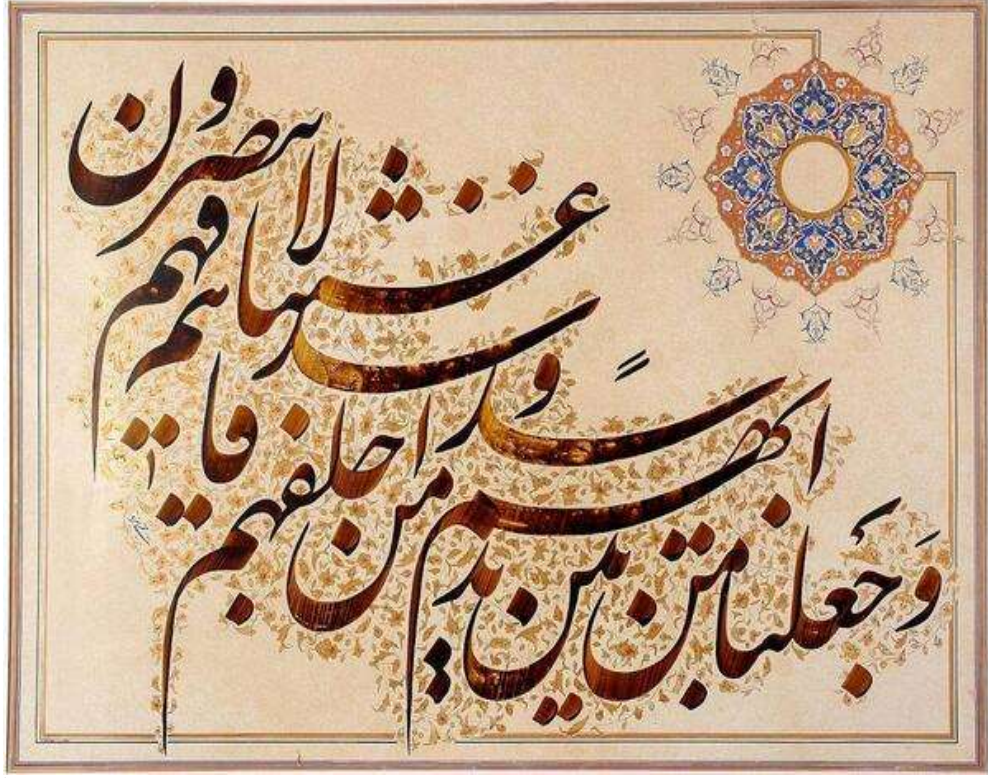 وَجعلنا من بین ایدیهم سداً
و من خلفهم سدا
فاغشیناهم فهم
لا یبصرون